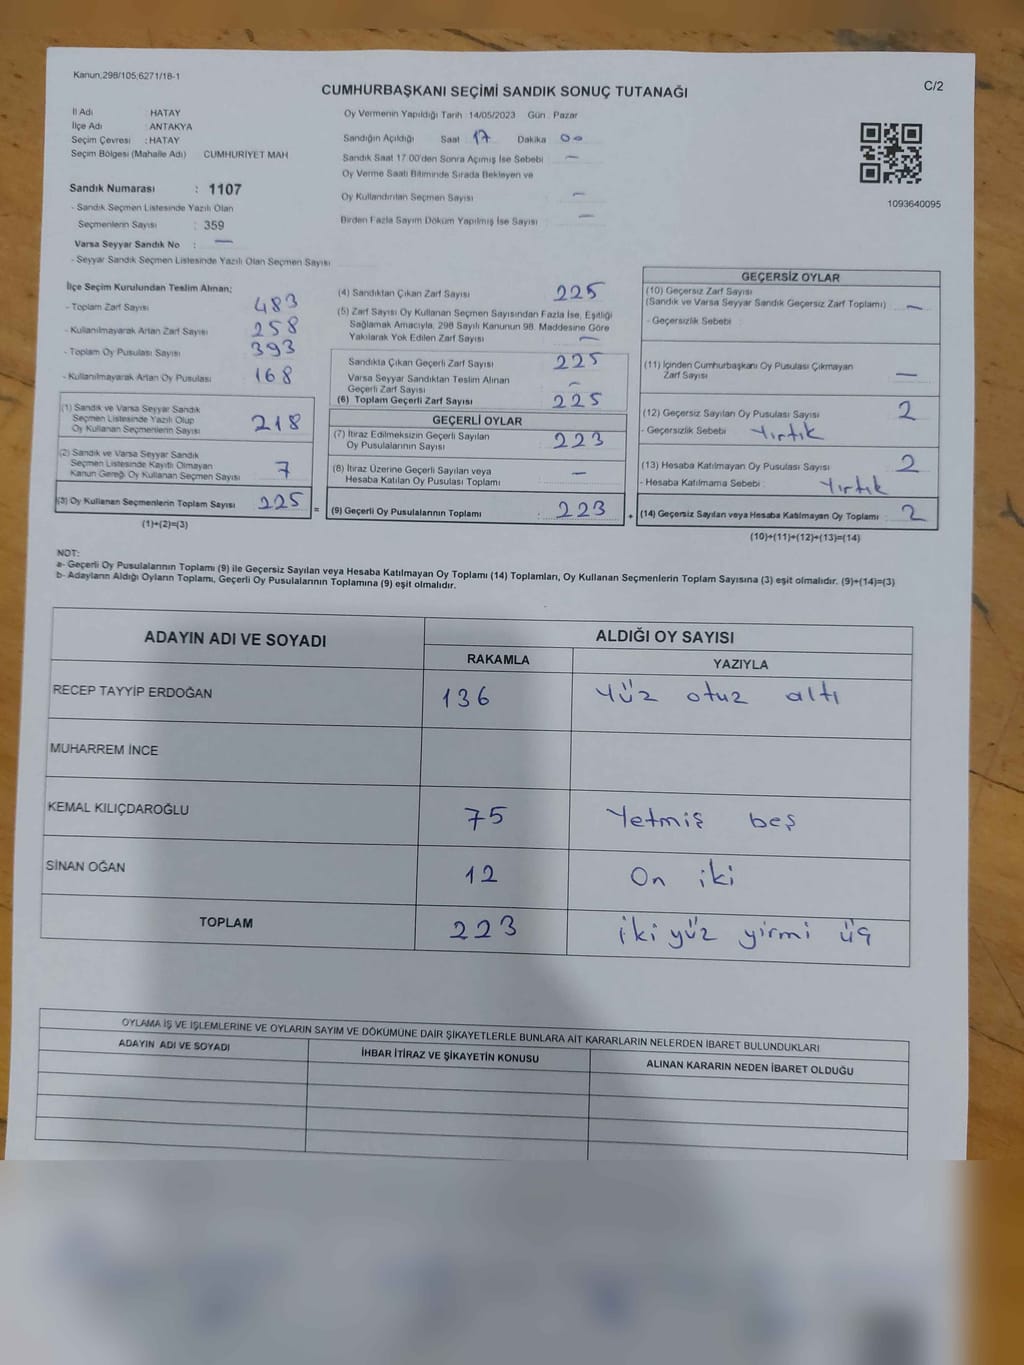 Kanun,298/105;6271/18-1
C/2
CUMHURBAŞKANI SEÇİMİ SANDIK SONUÇ TUTANAĞI
İl Adı HATAY
İlçe Adı ANTAKYA
Seçim Çevresi : HATAY
Seçim Bölgesi (Mahalle Adı) CUMHURİYET MAH
Sandık Numarası : 1107
- Sandık Seçmen Listesinde Yazılı Olan
Seçmenlerin Sayısı : 359
Varsa Seyyar Sandık No : —
- Seyyar Sandık Seçmen Listesinde Yazılı Olan Seçmen Sayısı
Oy Vermenin Yapıldığı Tarih : 14/05/2023 Gün : Pazar
Sandığın Açıldığı Saat 17 Dakika 00
Sandık Saat 17.00'den Sonra Açılmış İse Sebebi —
Oy Verme Saati Bitiminde Sırada Bekleyen ve
Oy Kullandırılan Seçmen Sayısı —
Birden Fazla Sayım Döküm Yapılmış İse Sayısı —
1093640095
İlçe Seçim Kurulundan Teslim Alınan;
- Toplam Zarf Sayısı 483
- Kullanılmayarak Artan Zarf Sayısı 258
- Toplam Oy Pusulası Sayısı 393
- Kullanılmayarak Artan Oy Pusulası 168
(1) Sandık ve Varsa Seyyar Sandık
Seçmen Listesinde Yazılı Olup
Oy Kullanan Seçmenlerin Sayısı 218
(2) Sandık ve Varsa Seyyar Sandık
Seçmen Listesinde Kayıtlı Olmayan
Kanun Gereği Oy Kullanan Seçmen Sayısı 7
(3) Oy Kullanan Seçmenlerin Toplam Sayısı 225 =
(1)+(2)=(3)
(4) Sandıktan Çıkan Zarf Sayısı 225
(5) Zarf Sayısı Oy Kullanan Seçmen Sayısından Fazla İse, Eşitliği
Sağlamak Amacıyla, 298 Sayılı Kanunun 98. Maddesine Göre
Yakılarak Yok Edilen Zarf Sayısı —
Sandıkta Çıkan Geçerli Zarf Sayısı 225
Varsa Seyyar Sandıktan Teslim Alınan
Geçerli Zarf Sayısı —
(6) Toplam Geçerli Zarf Sayısı 225
GEÇERLİ OYLAR
(7) İtiraz Edilmeksizin Geçerli Sayılan
Oy Pusulalarının Sayısı 223
(8) İtiraz Üzerine Geçerli Sayılan veya
Hesaba Katılan Oy Pusulası Toplamı —
(9) Geçerli Oy Pusulalarının Toplamı : 223 +
GEÇERSİZ OYLAR
(10) Geçersiz Zarf Sayısı
(Sandık ve Varsa Seyyar Sandık Geçersiz Zarf Toplamı) —
- Geçersizlik Sebebi :
(11) İçinden Cumhurbaşkanı Oy Pusulası Çıkmayan
Zarf Sayısı —
(12) Geçersiz Sayılan Oy Pusulası Sayısı 2
- Geçersizlik Sebebi Yırtık
(13) Hesaba Katılmayan Oy Pusulası Sayısı 2
- Hesaba Katılmama Sebebi : Yırtık
(14) Geçersiz Sayılan veya Hesaba Katılmayan Oy Toplamı 2
(10)+(11)+(12)+(13)=(14)
NOT:
a- Geçerli Oy Pusulalarının Toplamı (9) ile Geçersiz Sayılan veya Hesaba Katılmayan Oy Toplamı (14) Toplamları, Oy Kullanan Seçmenlerin Toplam Sayısına (3) eşit olmalıdır. (9)+(14)=(3)
b- Adayların Aldığı Oyların Toplamı, Geçerli Oy Pusulalarının Toplamına (9) eşit olmalıdır.
ADAYIN ADI VE SOYADI
ALDIĞI OY SAYISI
RAKAMLA YAZIYLA
RECEP TAYYİP ERDOĞAN 136 Yüz otuz altı
MUHARREM İNCE
KEMAL KILIÇDAROĞLU 75 Yetmiş beş
SİNAN OĞAN 12 On iki
TOPLAM 223 iki yüz yirmi üç
OYLAMA İŞ VE İŞLEMLERİNE VE OYLARIN SAYIM VE DÖKÜMÜNE DAİR ŞİKAYETLERLE BUNLARA AİT KARARLARIN NELERDEN İBARET BULUNDUKLARI
ADAYIN ADI VE SOYADI İHBAR İTİRAZ VE ŞİKAYETİN KONUSU ALINAN KARARIN NEDEN İBARET OLDUĞU